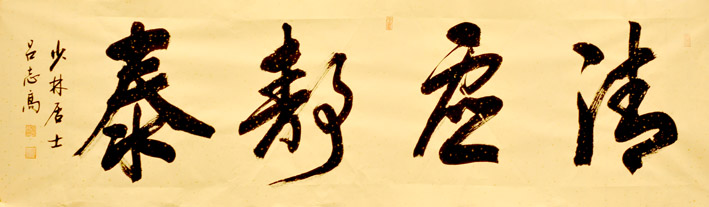 清虚静泰
少林居士
吕志高